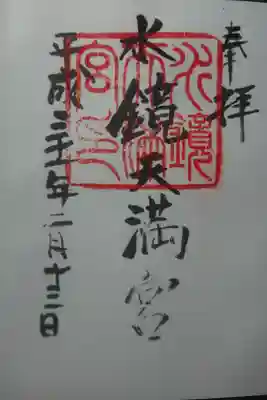 奉拝
水鏡天満宮
平成三十一年二月十三日